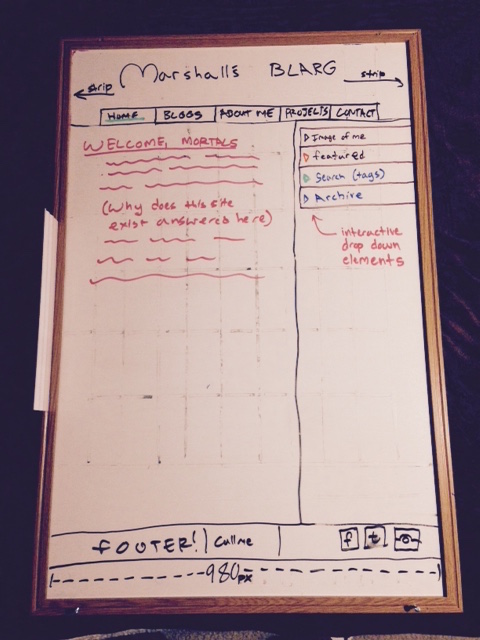 Marshalls BLARG
strip strip
HOME BLOGS ABOUT ME PROJECTS CONTACT
WELCOME, MORTALS
(Why does this site
exist answered here)
Image of me
featured
Search (tags)
Archive
interactive
drop down
elements
FOOTER! Call me f t
980px